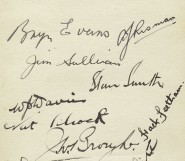 Bryn Evans
A J Risman
Jim Sullivan
Stan Smith
W Davies
Nat Silcock
Jos Brough
Jack Feetham